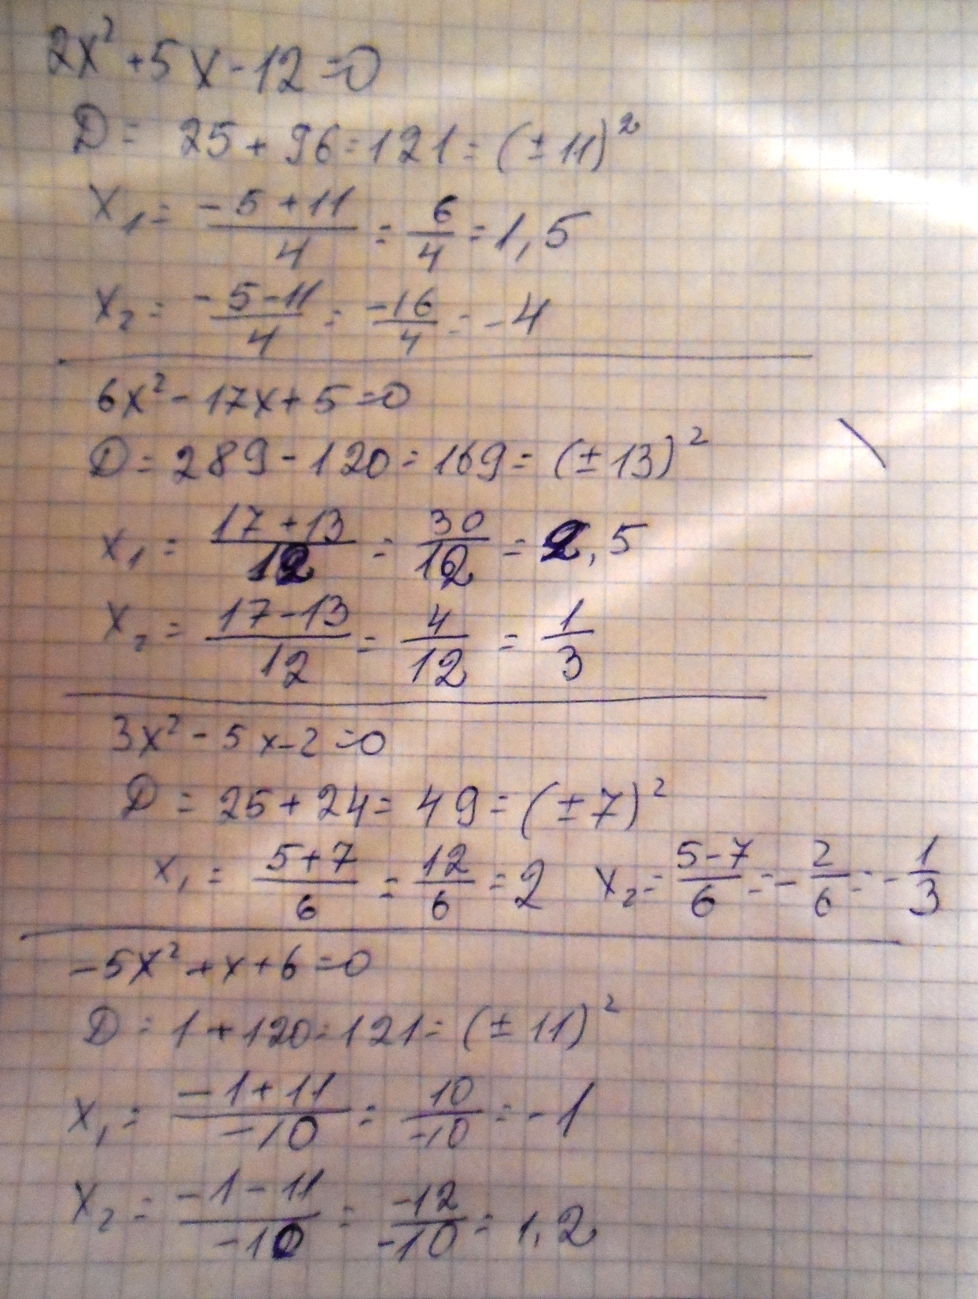 2x² + 5x - 12 = 0
D = 25 + 96 = 121 = (± 11)²
x₁ = (-5 + 11)/4 = 6/4 = 1,5
x₂ = (-5 - 11)/4 = -16/4 = -4
6x² - 17x + 5 = 0
D = 289 - 120 = 169 = (± 13)²
x₁ = (17 + 13)/12 = 30/12 = 2,5
x₂ = (17 - 13)/12 = 4/12 = 1/3
3x² - 5x - 2 = 0
D = 25 + 24 = 49 = (± 7)²
x₁ = (5 + 7)/6 = 12/6 = 2 x₂ = (5 - 7)/6 = -2/6 = -1/3
-5x² + x + 6 = 0
D = 1 + 120 = 121 = (± 11)²
x₁ = (-1 + 11)/-10 = 10/-10 = -1
x₂ = (-1 - 11)/-10 = -12/-10 = 1,2